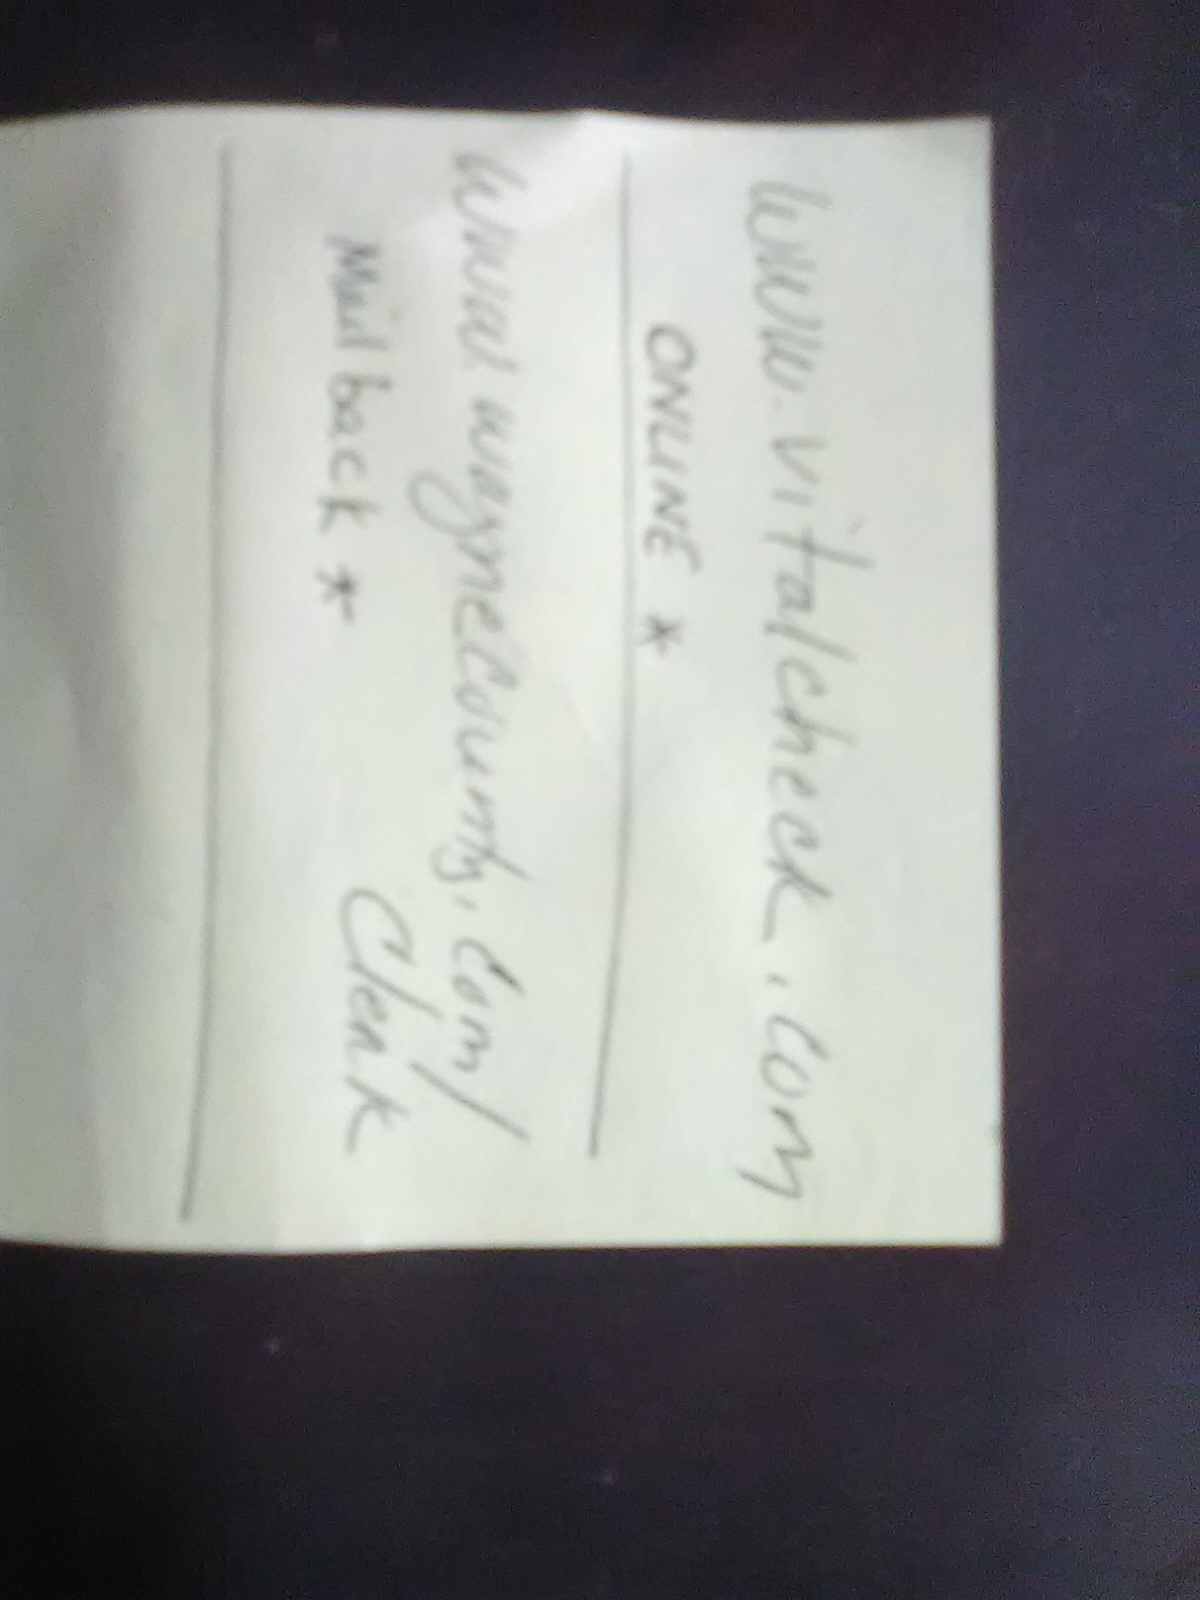 www.vitalcheck.com
ONLINE *
www.waynecounty.com/
Mail back * Clerk